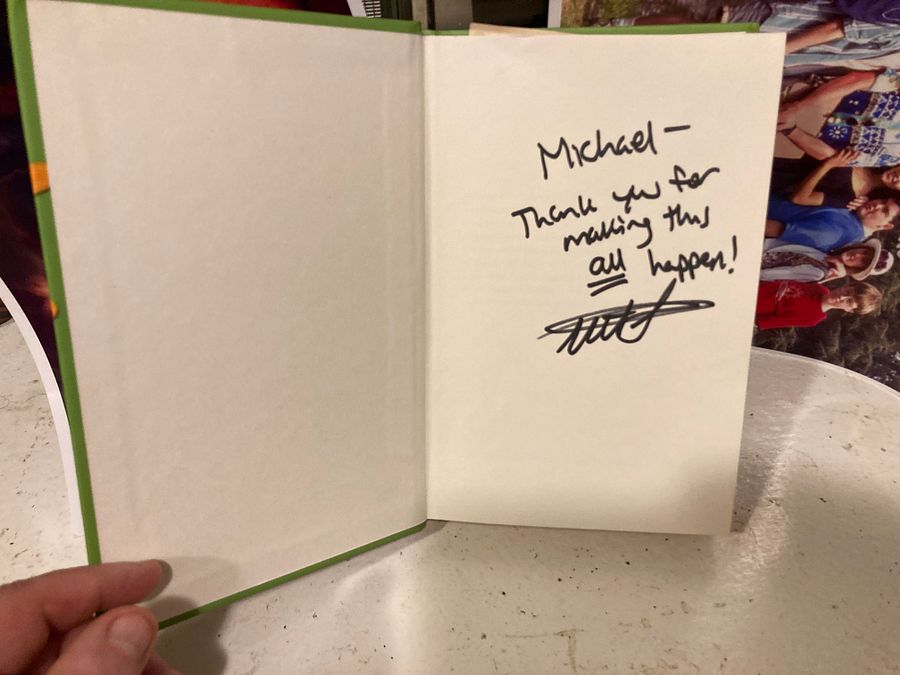 Michael—
Thank you for
making this
all happen!